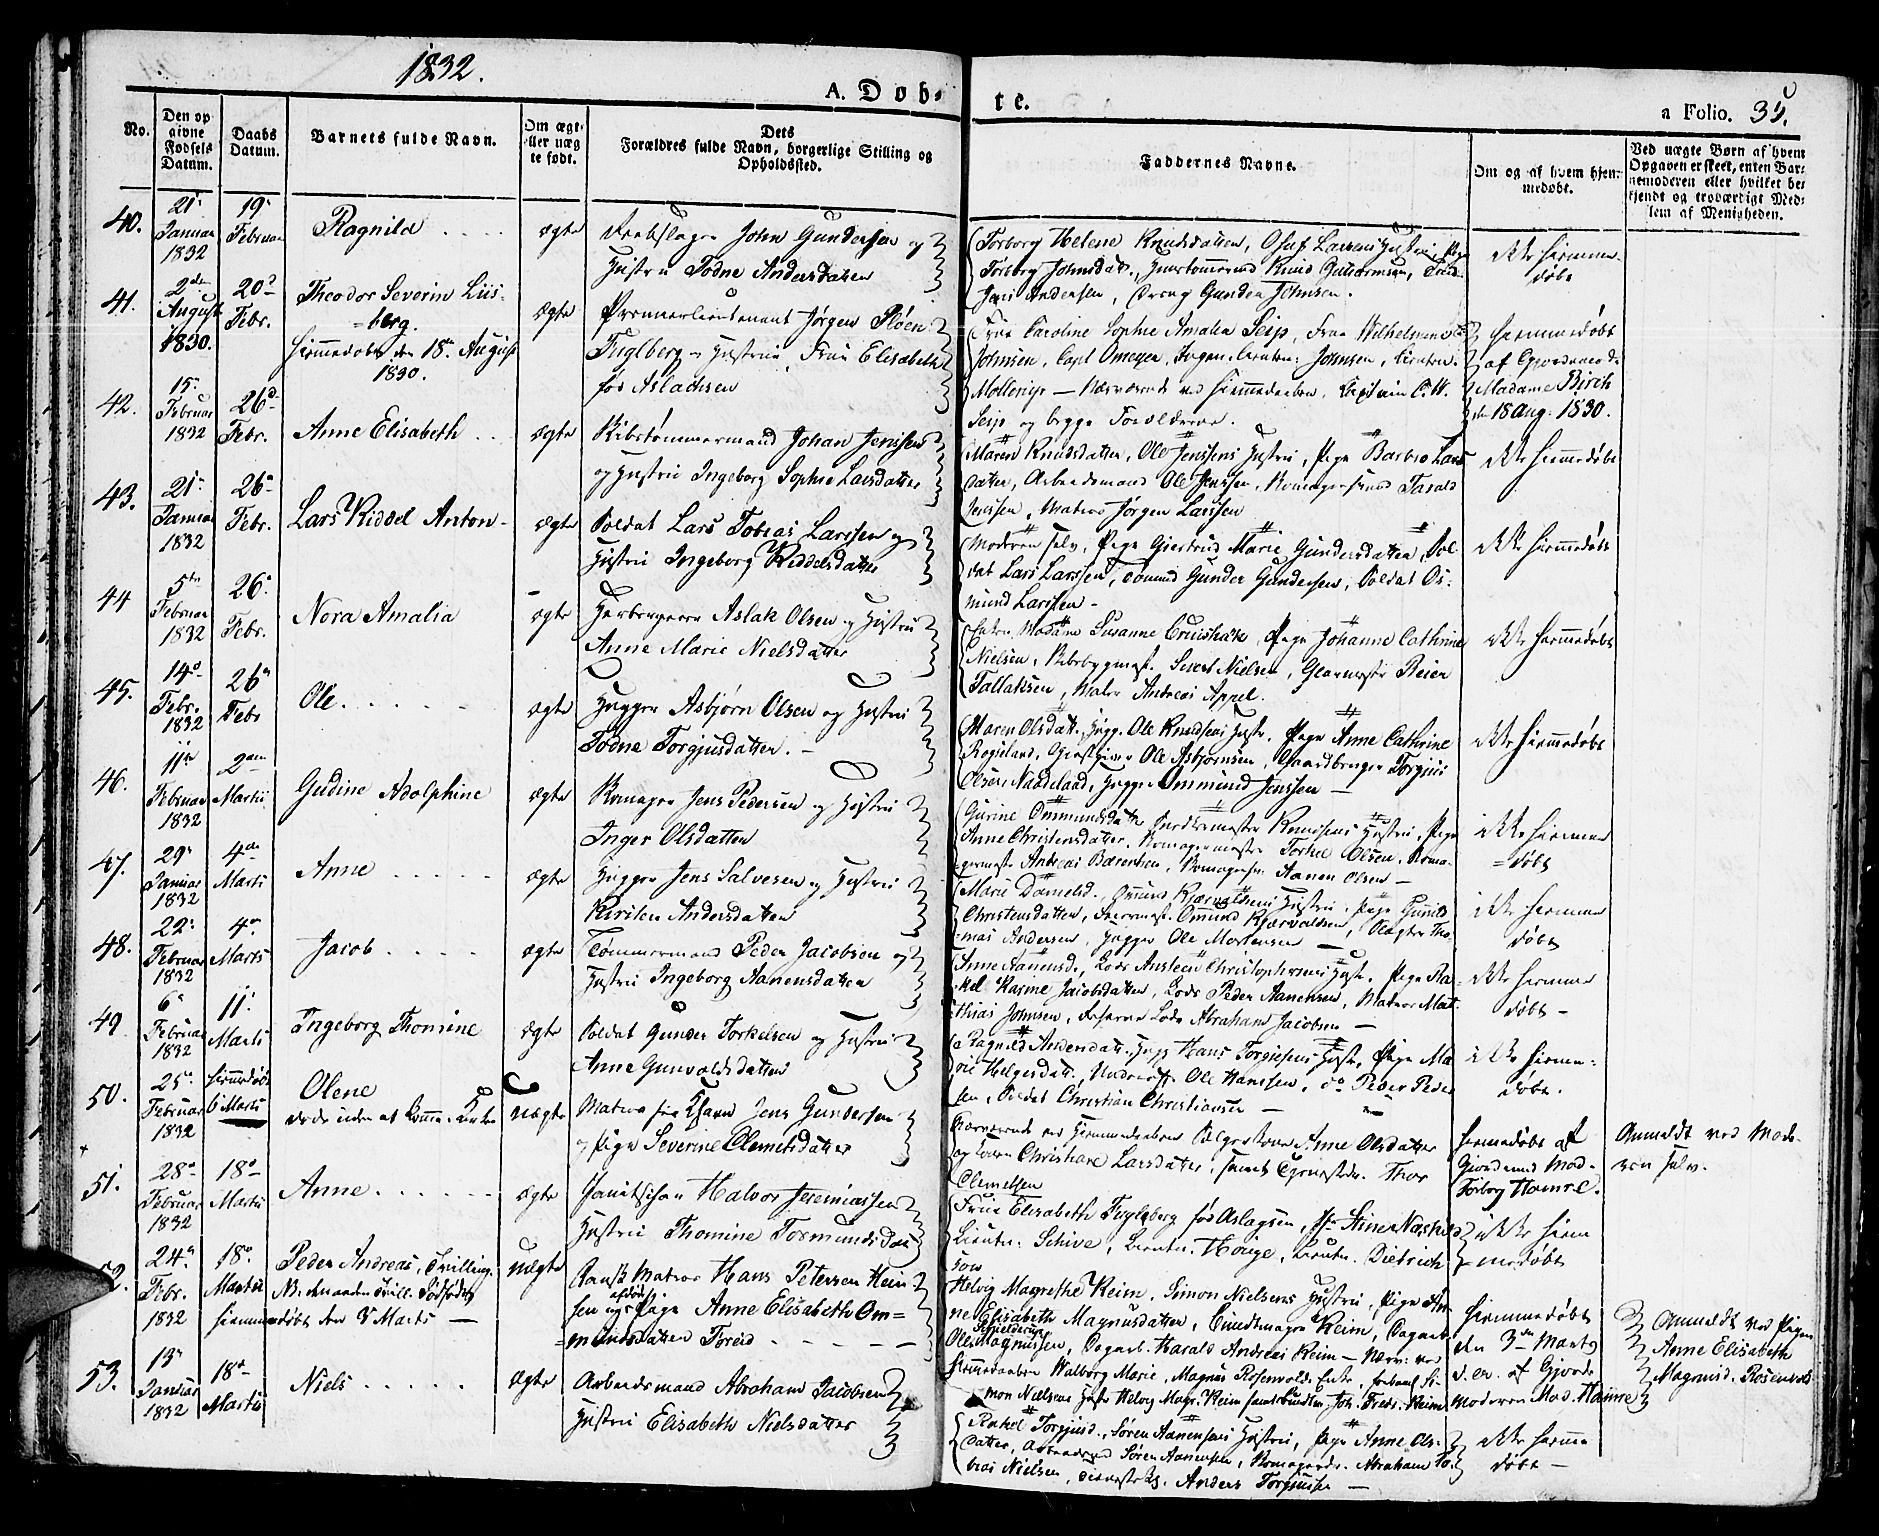 1832.
A. Döb-
te.
a Folio. 35.
No.
Den op
givne
Fødsels
Datum.
Daabs
Datum.
Barnets fulde Navn.
Om ægt-
eller uæg
te født.
Dets
Forældres fulde Navn, borgerlige Stilling og
Opholdssted.
Faddernes Navne.
Om og af hvem hjem-
medøbt.
Ved uægte Børn af hvem
Opgaven er skeet, enten Bar-
nemoderen eller hvilket be-
kjendt og troværdigt Med-
lem af Menigheden.
40.
21
Januar
1832
19
Februar
Ragnild
ægte
John Gundersen og
Hustru Todne Andersdatter
Torborg Helene Knudsdatter, Oluf Larsens Hustru, Pige
Torborg Johnsdatt., Knud Guttormsen,
Jens Andersen, Dreng Gunder Johnsen.
ikke hjemme
døbt
41.
2den
August
1830.
20de
Febr.
Theodor Severin Liis-
berg.
hjemmedøbt den 18de August
1830.
ægte
Premierlieutenant Jørgen Ploen
Fuglberg og Hustru, Frue Elisabeth
fød Aslachsen
Frue Caroline Sophie Amalia Seip, Frue Wilhelmine
Johnsen, Capt Omeyer, Ingen. Lieuten: Johnsen, Lieuten.
Møllerup — Nærværende ved Hjemmedaaben, Capitain C. W.
Seip og begge Forældrene.
hjemmedøbt
af
Madame Birch
d. 18 Aug. 1830.
42.
15
Februar
1832
26de
Febr.
Anne Elisabeth
ægte
Skibstømmermand Johan Jenssen
og Hustru Ingeborg Sophie Larsdatter
Maren Knudsdatter, Ole Jenssens Hustru, Pige Barbro Lars
datter, Arbeidsmand Ole Jenssen, Tarald
Jenssen, Matros Jørgen Larssen
ikke hjemmedøbt
43.
21
Januar
1832
26
Febr.
Lars Kiddel Anton
ægte
Soldat Lars Tobias Larssen og
Hustru Ingeborg Kiddelsdatter
Moderen selv, Pige Giertrud Marie Gundersdatter, Sol-
dat Lars Larssen, Gunder Gundersen, Soldat Os-
mund Larssen
ikke hjemmedøbt
44
5te
Februar
1832
26
Febr.
Nora Amalia
ægte
Aslak Olsen og Hustru
Anne Marie Nielsdatter
Enke, Madame Susanne Cruishank, Pige Johanne Cathrine
Nielsen, Skibsbygmest. Sivert Nielsen, Glarmester Reier
Tallaksen, Maler Andreas Appel.
ikke hjemmedøbt
45.
14
Febr.
1832
26
Febr
Ole
ægte
Hugger Asbjørn Olsen og Hustru
Todne Torgjusdatter.
Maren Olsdatt., Hugg. Ole Knudsens Hustr. Pige Anne Cathrine
Rogeland, Ole Asbjørnsen, Gaardbruger Torgjus
Olsen Naddeland, Hugger Ommund Jenssen
ikke hjemmedøbt
46.
11te
Februar
1832
2den
Martii
Gudine Adolphine
ægte
Jens Pedersen og Hustru
Inger Olsdatter
Gurine Ommundsdatter, Knudsens Hustru, Pige
Anne Christensdatter, Torkel Olsen,
Andreas Bærentsen, Aanen Olsen
ikke hjemme
døbt
47.
29
Januar
1832
4de
Marts
Anne
ægte
Hugger Jens Salvesen og Hustru
Kirsten Andersdatter
Marie Danielsd., Omund Kjærvaldsens Hustru, Pige Gunild
Christensdatter, Omund Kjærvaldsen, Tho-
mas Andersen, Hugger Ole Mortensen
ikke hjemme
døbt
48.
22
Februar
1832
4
Marts
Jacob
ægte
Tømmermand Peder Jacobsen og
Hustru Ingeborg Aanensdatter
Anne Aanensd., Lods Ansteen Christophersens Hust., Pige Ra-
kel Karine Jacobsdatter, Lods Peder Aanensen, Matros Mat-
thias Johnsen, Lods Abraham Jacobsen
ikke hjemme
døbt
49
6
Februar
1832
11
Marts
Ingeborg Thomine
ægte
Soldat Gunder Torkelsen og Hustru
Anne Gunvoldsdatter
Ragnild Andersdatt., Hugg Hans Torgiersens Hust., Pige Ma-
rie Helgesdatt., Ole Hanssen, do Peder Peder
sen, Soldat Christian Christiansen
ikke hjemme-
døbt.
50.
25
Februar
1832
hjemmedøbt
6 Marts
Olene
døde uden at komme i Kirken
uægte
Matros Jens Gundersen
og Pige Severine Clemetsdatter
Nærværende ved Hjemmedaaben Anne Olsdatter
og Christiane Larsdatter, samt Thor
Clemetsen
hjemmedøbt af
Gjordemod Mad.
Torborg Hamre.
Anmeldt ved Mode-
ren selv.
51.
28
Februar
1832
18
Martii
Anne
ægte
Halvor Jeremiassen
Hustru Thomine Tormundsdatt
Frue Elisabeth Fuglberg fød Aslagsen, Stine
Lieutn. Schive, Lieutn. Houge, Lieutn. Dietrich
son
ikke hjem
medøbt
52.
24
Febr.
1832
18
Martii
Peder Andreas, Tvilling.
NB. den anden Tvill. Dødfødt
hjemmedøbt den 3 Marts
uægte
Dansk Matros Hans Petersen Hein-
sen og afdøde Pige Anne Elisabeth Om-
mundsdatter
Helvig Magrethe Reim, Simon Nielsens Hustru, Pige An-
ne Elisabeth Magnusdatter, Reim,
Ole Magnussen, Dagarb. Harald Andreas Reim — Nærv. ved
Hjemmedaaben Walborg Marie, Magnus Rosenvolds Enke, forbemt Si-
mon Nielsens Hustr. Helvig Magr. Reim samt Joh. Fredr. Reim
hjemmedøbt
den 3die Marts
af Gjorde
moderen Mad. Hamre
Anmeldt ved Pigen
Anne Elisabeth
Magnusd. Rosenvold
53.
13
Januar
1832
18
Martii
Niels
ægte
Arbeidsmand Abraham Jacobsen
Hustru Elisabeth Nielsdatter
Rakel Torgjusd., Søren Aanensens Hustru, Pige Anne Ols-
datter, Søren Aanensen, Abraham To-
bias Nielsen, Anders Torgjusen
ikke hjemme
døbt